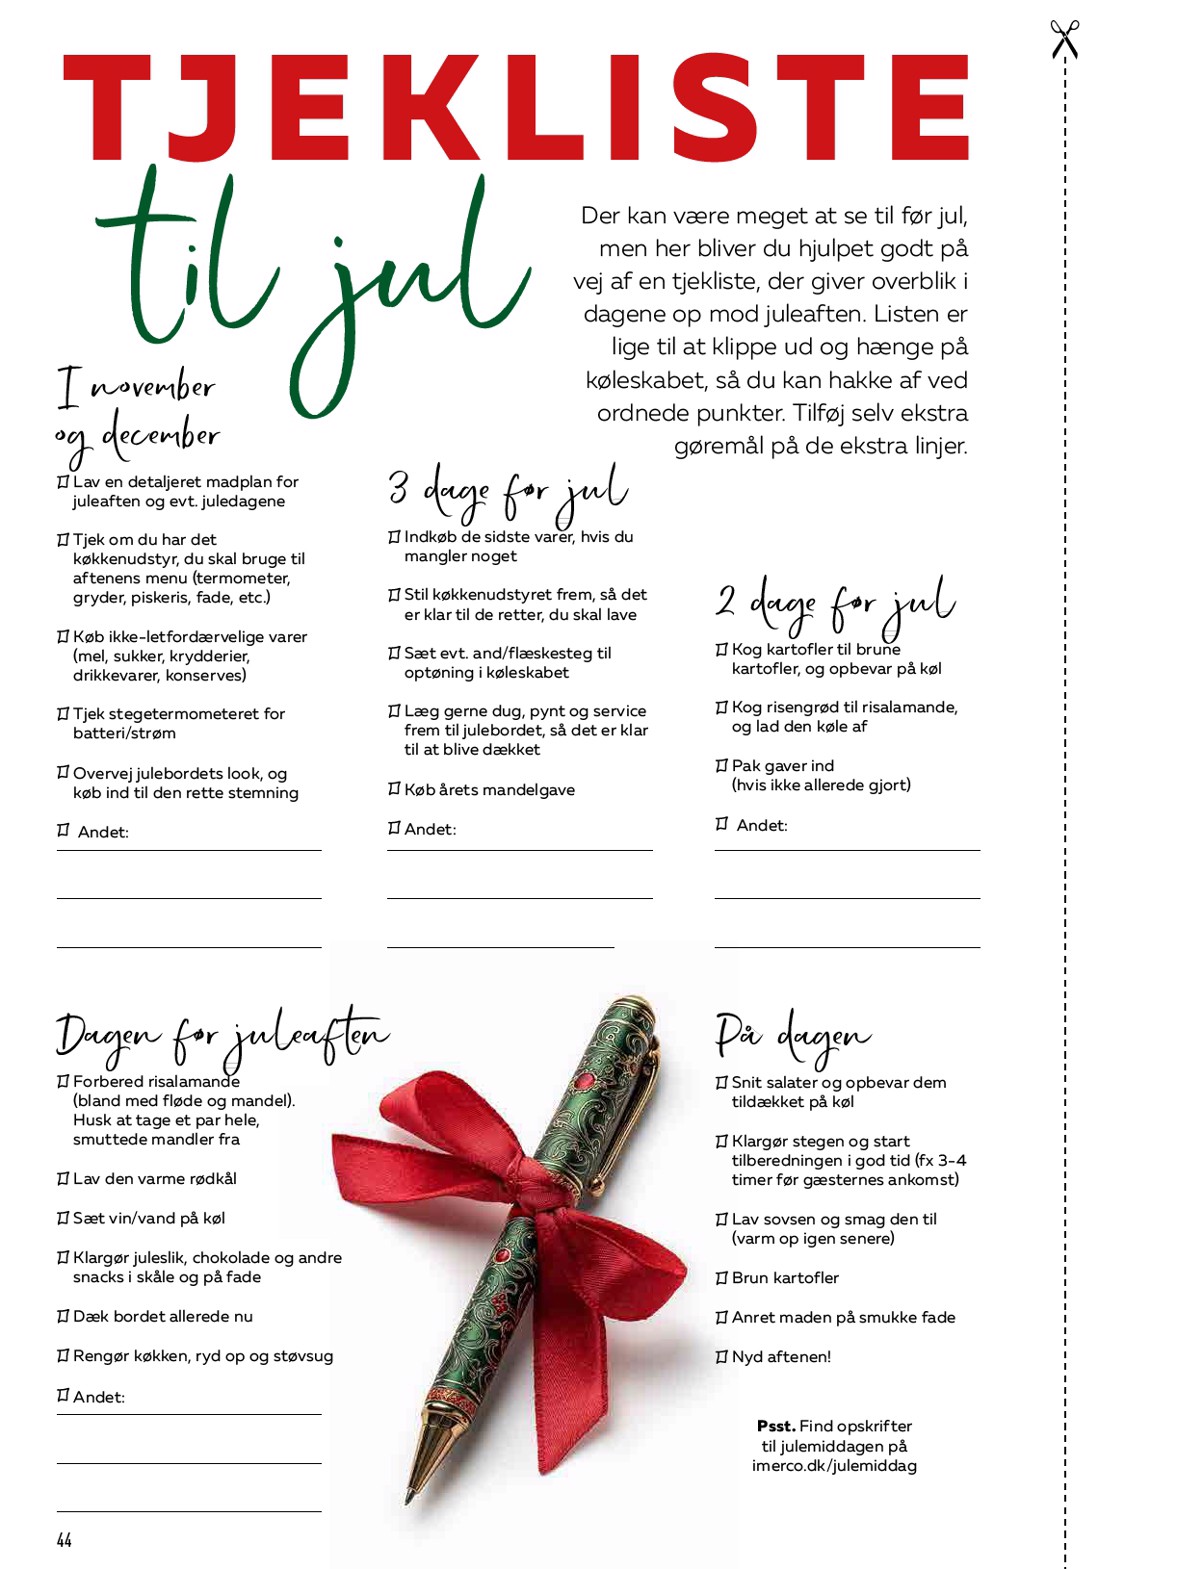 TJEKLISTE
til jul
Der kan være meget at se til før jul,
men her bliver du hjulpet godt på
vej af en tjekliste, der giver overblik i
dagene op mod juleaften. Listen er
lige til at klippe ud og hænge på
køleskabet, så du kan hakke af ved
ordnede punkter. Tilføj selv ekstra
gøremål på de ekstra linjer.
I november
og december
Lav en detaljeret madplan for
juleaften og evt. juledagene
Tjek om du har det
køkkenudstyr, du skal bruge til
aftenens menu (termometer,
gryder, piskeris, fade, etc.)
Køb ikke-letfordærvelige varer
(mel, sukker, krydderier,
drikkevarer, konserves)
Tjek stegetermometeret for
batteri/strøm
Overvej julebordets look, og
køb ind til den rette stemning
Andet:
3 dage før jul
Indkøb de sidste varer, hvis du
mangler noget
Stil køkkenudstyret frem, så det
er klar til de retter, du skal lave
Sæt evt. and/flæskesteg til
optøning i køleskabet
Læg gerne dug, pynt og service
frem til julebordet, så det er klar
til at blive dækket
Køb årets mandelgave
Andet:
2 dage før jul
Kog kartofler til brune
kartofler, og opbevar på køl
Kog risengrød til risalamande,
og lad den køle af
Pak gaver ind
(hvis ikke allerede gjort)
Andet:
Dagen før juleaften
Forbered risalamande
(bland med fløde og mandel).
Husk at tage et par hele,
smuttede mandler fra
Lav den varme rødkål
Sæt vin/vand på køl
Klargør juleslik, chokolade og andre
snacks i skåle og på fade
Dæk bordet allerede nu
Rengør køkken, ryd op og støvsug
Andet:
På dagen
Snit salater og opbevar dem
tildækket på køl
Klargør stegen og start
tilberedningen i god tid (fx 3-4
timer før gæsternes ankomst)
Lav sovsen og smag den til
(varm op igen senere)
Brun kartofler
Anret maden på smukke fade
Nyd aftenen!
Psst. Find opskrifter
til julemiddagen på
imerco.dk/julemiddag
44